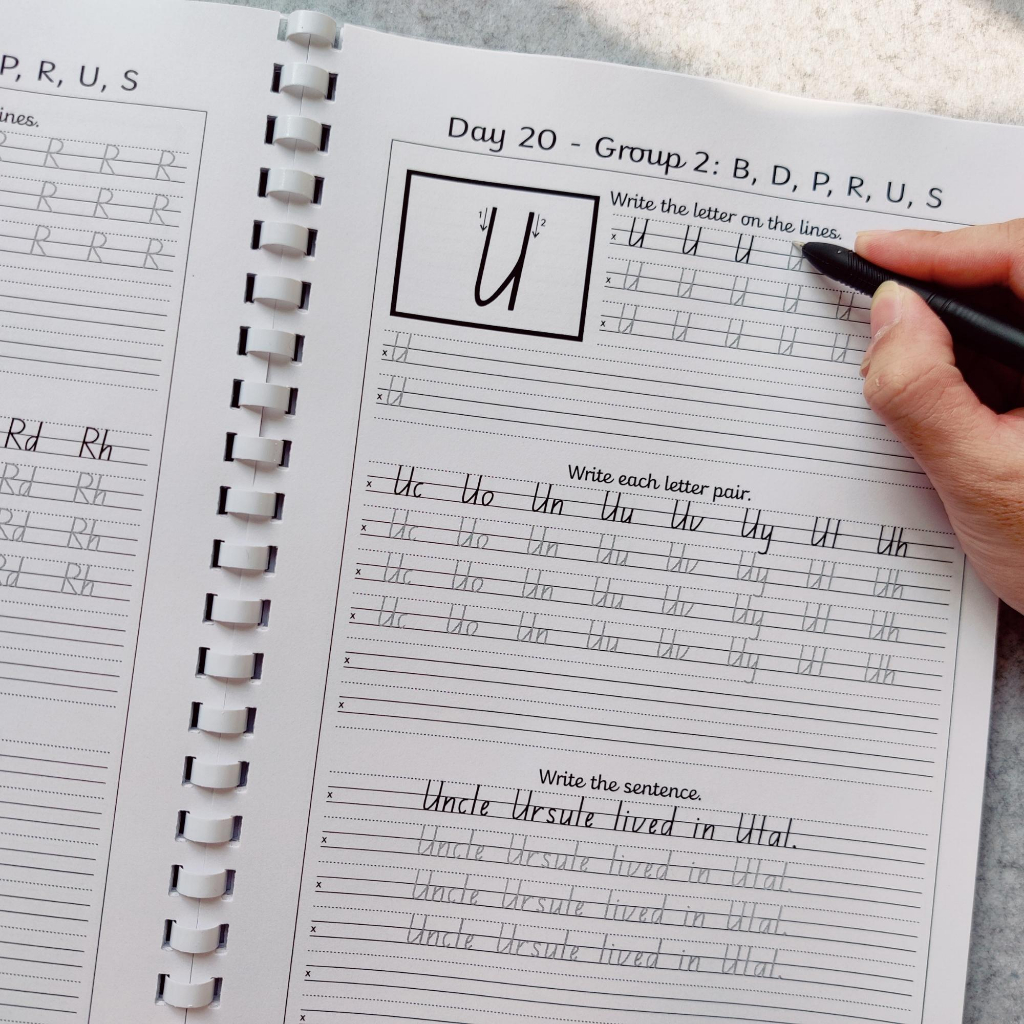 P, R, U, S
ines.
R R R R
R R R
R R R
Rd Rh
Rd Rh
Rd Rh
Rd Rh
Day 20 - Group 2: B, D, P, R, U, S
1 2
U
Write the letter on the lines.
x U U U U
x U U U U U
x U U U U U
x U
x U
Write each letter pair.
x Uc Uo Un Uu Uv Uy Ut Uh
x Uc Uo Un Uu Uv Uy Ut Uh
x Uc Uo Un Uu Uv Uy Ut Uh
x Uc Uo Un Uu Uv Uy Ut Uh
x
x
Write the sentence.
x Uncle Ursule lived in Utal.
x Uncle Ursule lived in Utal.
x Uncle Ursule lived in Utal.
x Uncle Ursule lived in Utal.
x
x